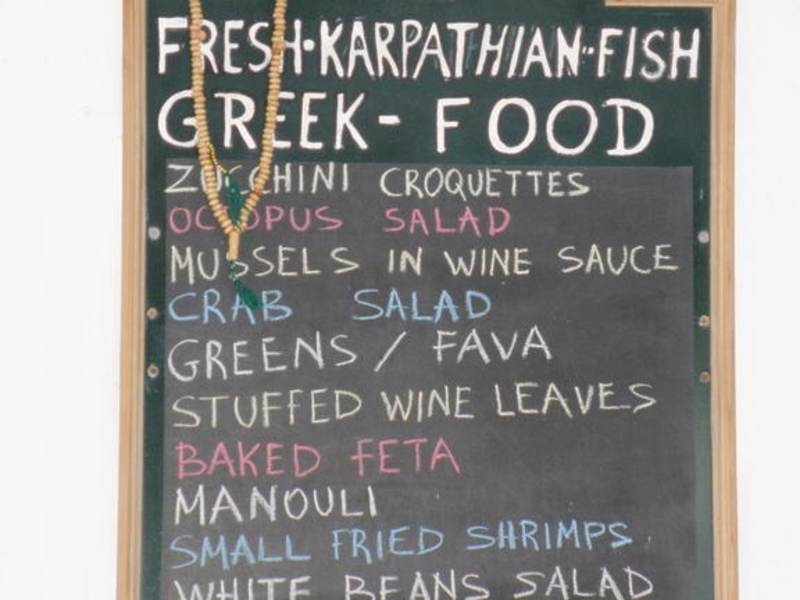 FRESH·KARPATHIAN-FISH
GREEK- FOOD
ZUCCHINI CROQUETTES
OCTOPUS SALAD
MUSSELS IN WINE SAUCE
CRAB SALAD
GREENS / FAVA
STUFFED WINE LEAVES
BAKED FETA
MANOULI
SMALL FRIED SHRIMPS
WHITE BEANS SALAD